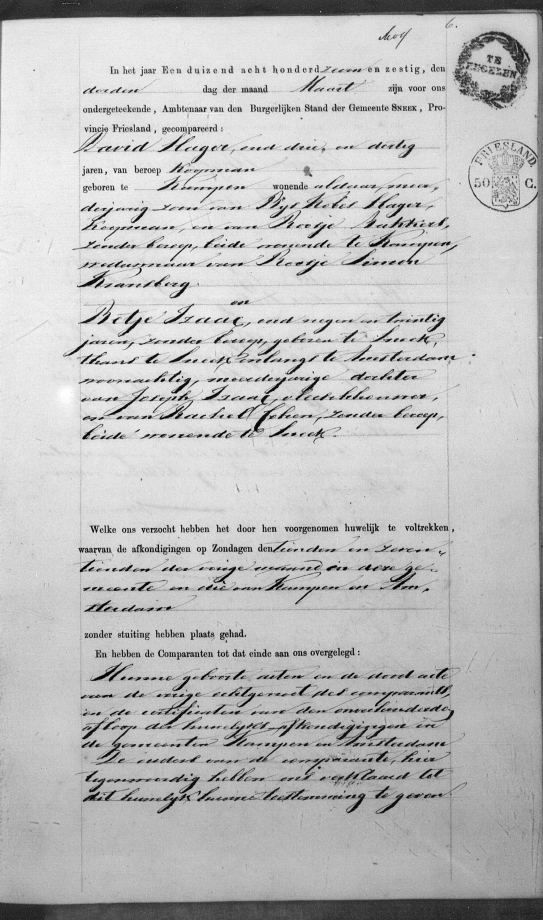 6.
TE
ZEGELEN
In het jaar Een duizend acht honderd zeven en zestig, den
derden dag der maand Maart zijn voor ons
ondergeteekende, Ambtenaar van den Burgerlijken Stand der Gemeente SNEEK, Pro-
vincie Friesland, gecompareerd:
FRIESLAND
50 C.
David Hager, oud drie en dertig
jaren, van beroep Koopman
geboren te Kampen wonende aldaar, meer-
derjarig zoon van Hager,
koopman, en van Roosje Bakker,
zonder beroep, beide wonende te Kampen,
weduwnaar van Roosje Simon
Kransberg.
en
Betje Izaac, oud negen en twintig
jaren, zonder beroep, geboren te Sneek,
thans te Sneek onlangs te Amsterdam
woonachtig, meerderjarige dochter
van Joseph Izaac, vleeschhouwer,
en van Rachel Cohen, zonder beroep,
beide wonende te Sneek.
Welke ons verzocht hebben het door hen voorgenomen huwelijk te voltrekken,
waarvan de afkondigingen op Zondagen den tienden en zeven-
tienden der vorige maand in deze ge-
meente en die van Kampen en Am-
sterdam
zonder stuiting hebben plaats gehad.
En hebben de Comparanten tot dat einde aan ons overgelegd:
Hunne geboorte acten en de dood acte
van de vorige echtgenoot des comparants
en de certificaten van den onverhinderden
afloop der huwelijks afkondigingen in
de gemeenten Kampen en Amsterdam
De ouders van de comparante, hier
tegenwoordig hebben ons verklaard tot
dit huwelijk hunne toestemming te geven